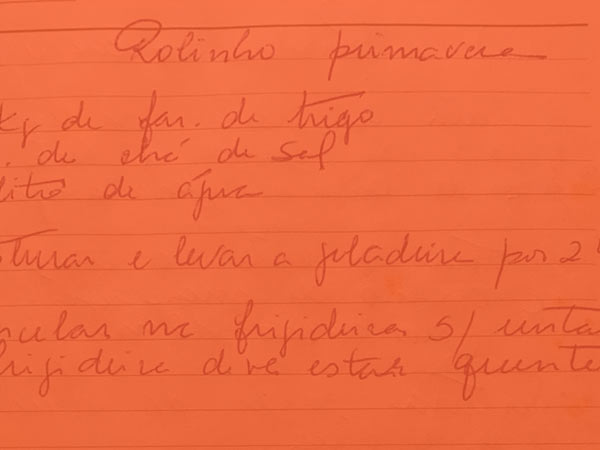 Rolinho primavera
kg de far. de trigo
. de chá de sal
litro de água
sturar e levar a geladeira por 2
frigideira s/ unta
rigideira deve estar quente